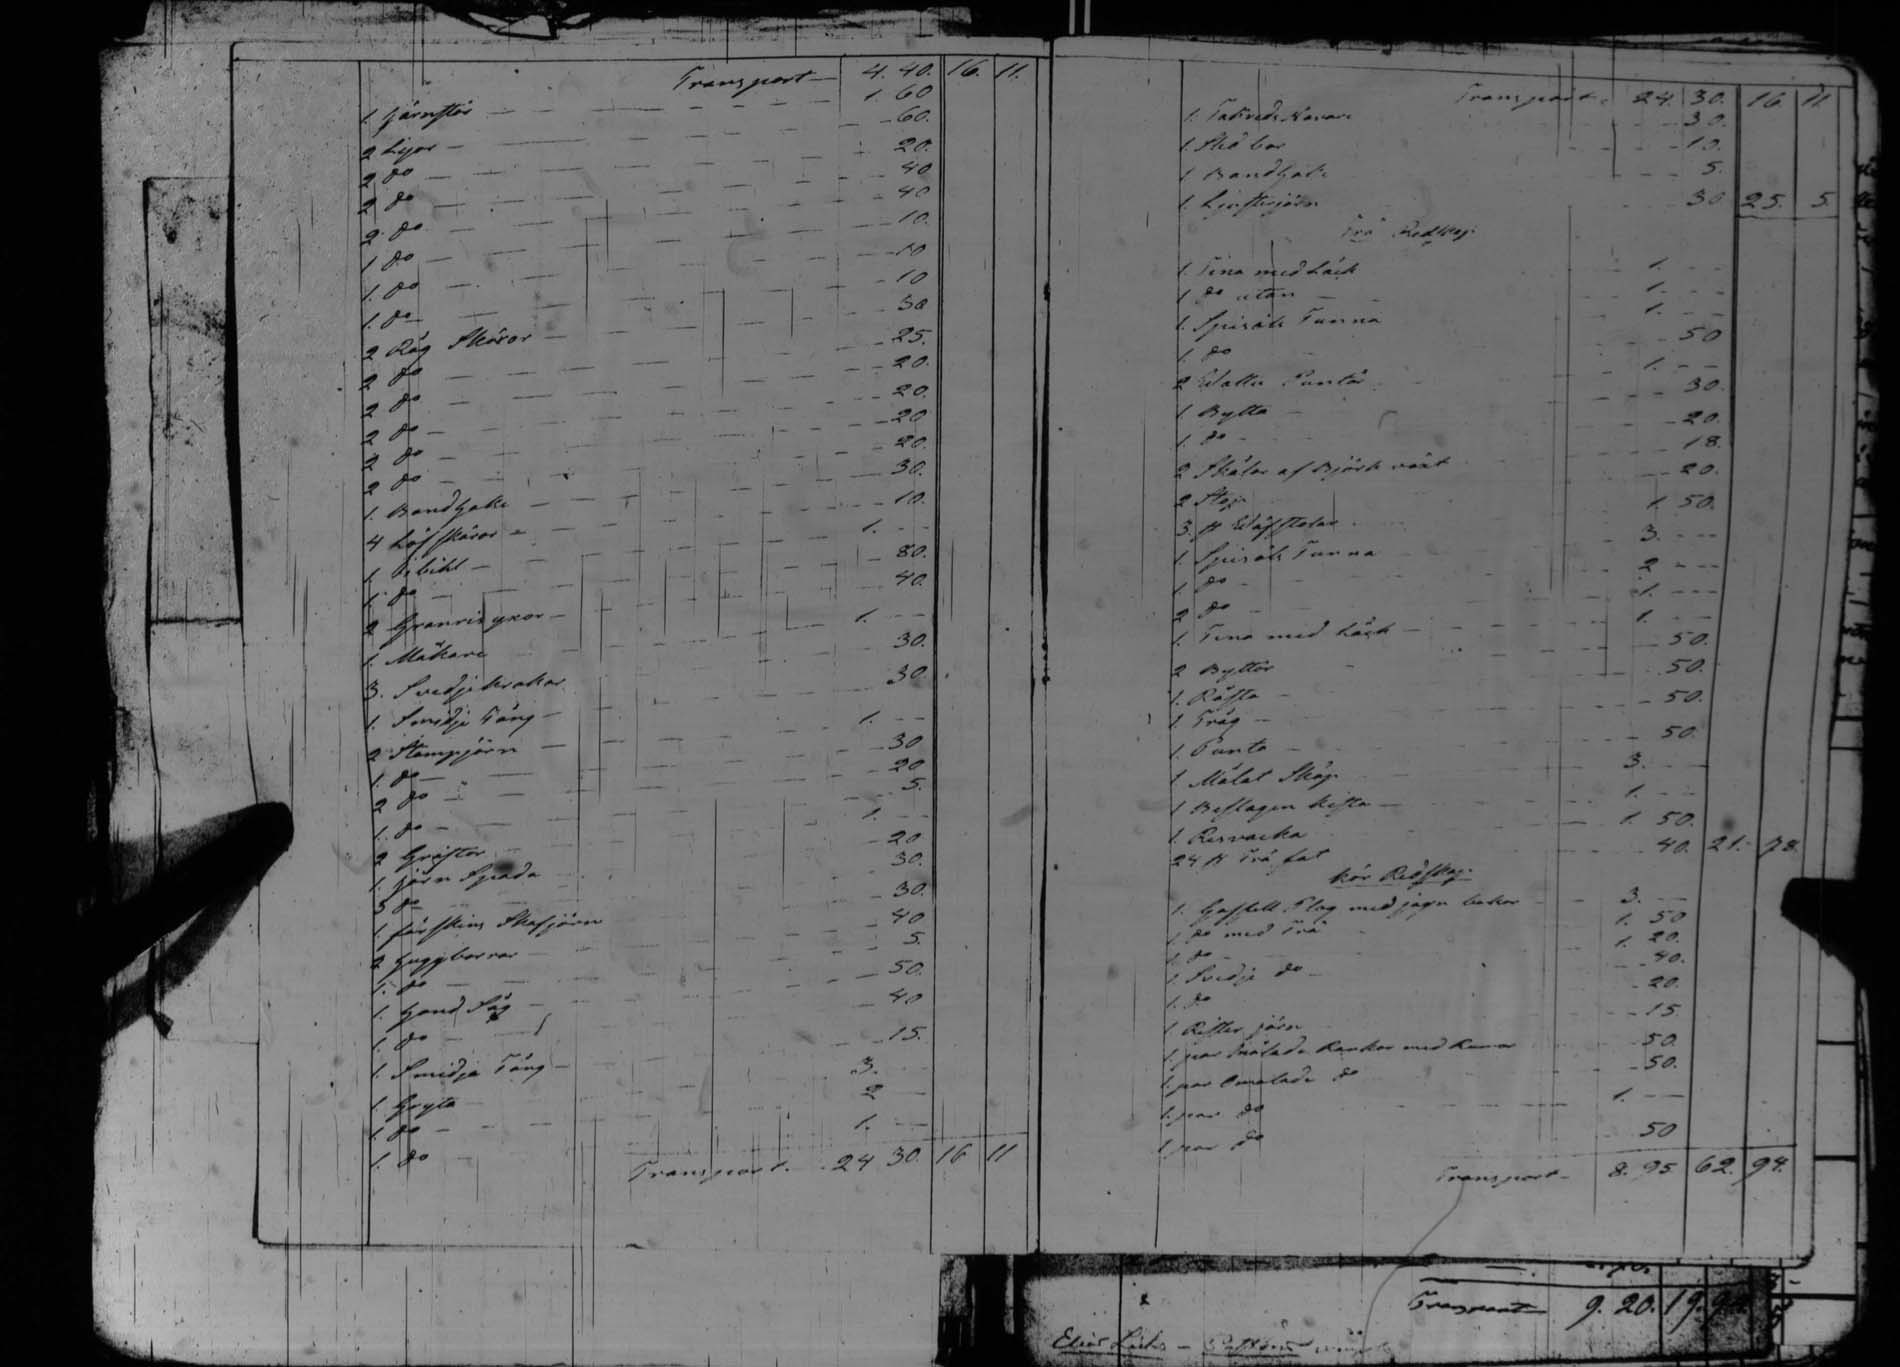 Transport 4. 40. 16. 11.
1. järnstör 1. 60
2 Lijor 60.
2 do 20.
2 do 40
2 do 40
1 do 10.
1. do 10
1. do 10
2 Råg Skäror 30
2 do 25.
2 do 20.
2 do 20.
2 do 20
2 do 20.
1. Bandhake 30.
4 Löfskäror 10.
1. 1.
1. do 80.
2 Granris yxor 40.
1. Måkare 1.
3. Svedjekrokar 30.
1. Smidje Tång 30.
2 Stampjärn 1.
1. do 30
2 do 20
1. do 5.
2 Gräftor 1.
1. järn Spada 20
3 do 30.
1. fårskins Skafjärn 30.
2 huggborrar 40
1. do 5.
1. Hand Såg 50.
1. do 40
1. Smidja Tång 15.
1 Gryta 3.
1. do 2
1. do 1.
Transport 24 30. 16 11
Transport 24. 30. 16 11
1. Takveds Knivar 30.
1. Sko bor 10.
1 Bandhake 5.
1. Ljusterjärn 30 25. 5.
Trä Redskap
1. Tina med Läck 1.
1 do utan 1.
1. Spisöls Tunna 1.
1. do 50
2 Wattu Puntor 1.
1 Bytta 30.
1. do 20.
2 Skålar af Björk växt 18.
2 Stop 20.
3. st Wäfstolar 1. 50.
1. Spisöls Tunna 3.
1. do 2
2 do 1.
1. Tina med Läck 1.
2 Byttor 50.
1. 50.
1 Tråg 50.
1. Punta 50.
1 Målat Skåp 3.
1 Beslagen kista 1.
1. 1. 50.
24 st Trä fat 40. 21. 78.
Kör Redskap
1. Gaffell Plog med järn bakor 3.
1 do med Trä 1. 50
1. do 1. 20.
1 Svedje do 40.
1. do 20.
1. Rister järn 15.
1. par Målade med 50.
1. par Omålade do 50.
1. par do 1.
1 par do 50
Transport 8. 95 62. 94.
Transport 9. 20. 19.